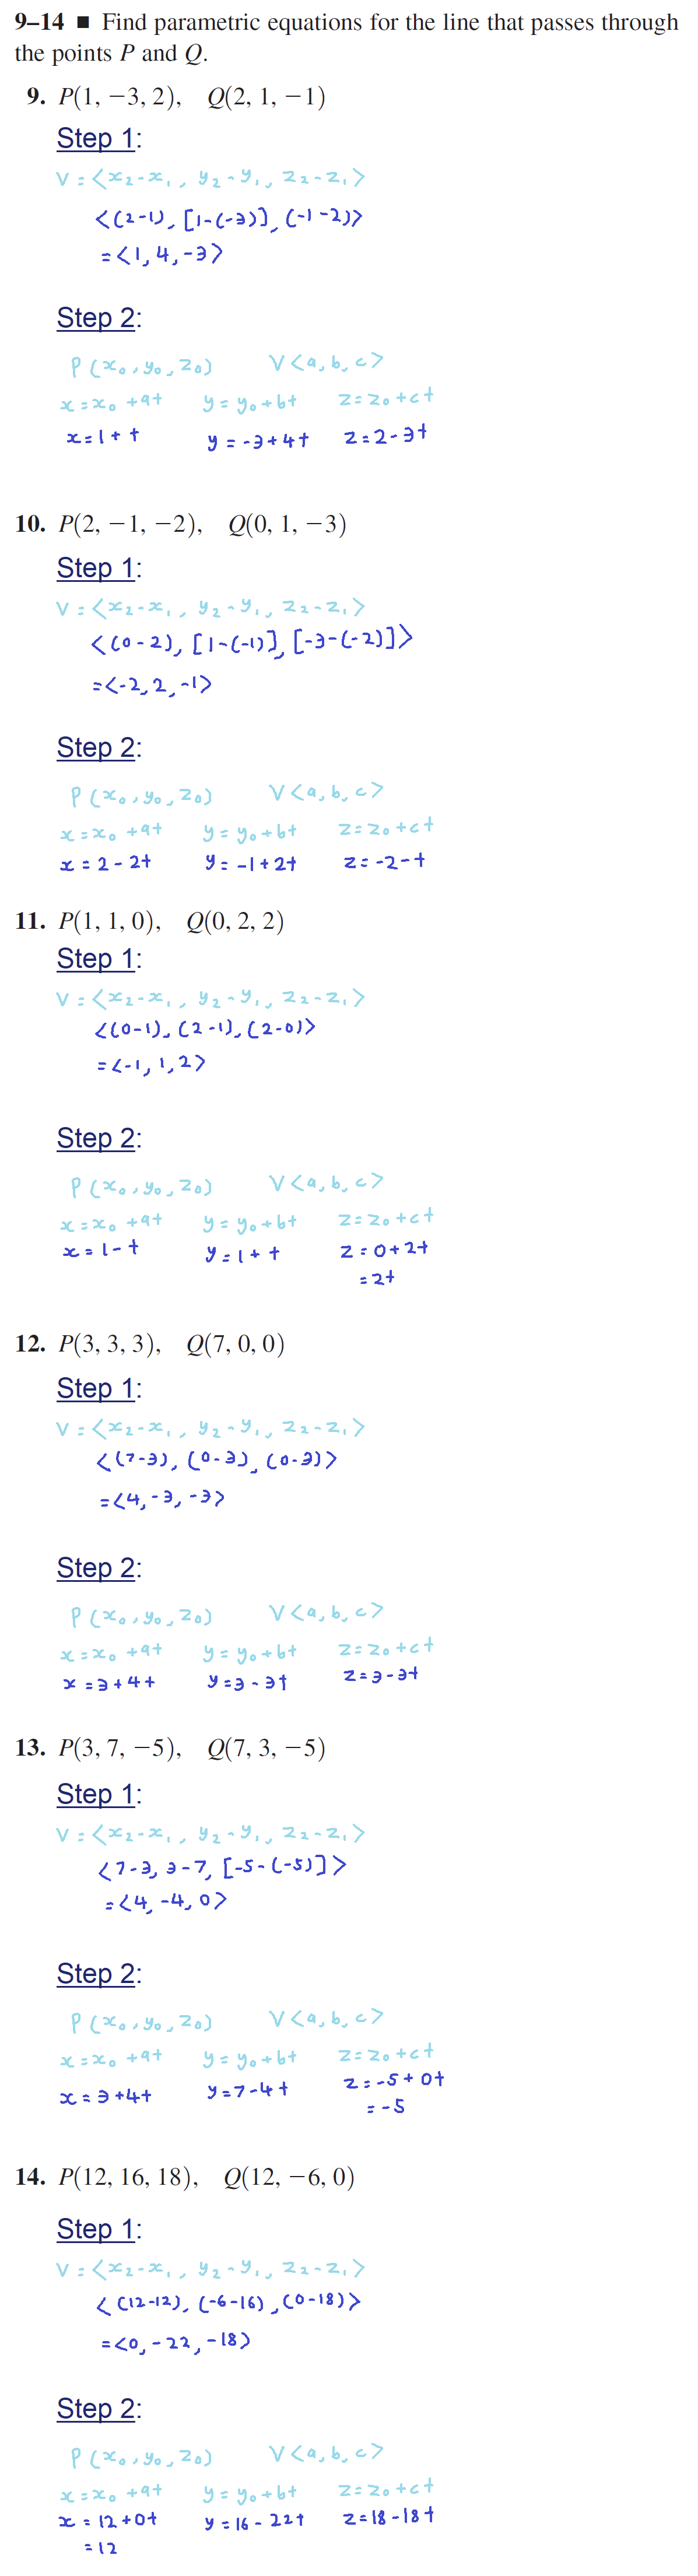 9–14 ■ Find parametric equations for the line that passes through
the points P and Q.
9. P(1, −3, 2), Q(2, 1, −1)
Step 1:
V = <x₂-x₁, y₂-y₁, z₂-z₁>
<(2-1), [1-(-3)], (-1-2)>
= <1, 4, -3>
Step 2:
P (x₀, y₀, z₀) V<a, b, c>
x = x₀ + at y = y₀ + bt z = z₀ + ct
x = 1 + t y = -3 + 4t z = 2 - 3t
10. P(2, −1, −2), Q(0, 1, −3)
Step 1:
V = <x₂-x₁, y₂-y₁, z₂-z₁>
<(0-2), [1-(-1)], [-3-(-2)]>
= <-2, 2, -1>
Step 2:
P (x₀, y₀, z₀) V<a, b, c>
x = x₀ + at y = y₀ + bt z = z₀ + ct
x = 2 - 2t y = -1 + 2t z = -2 - t
11. P(1, 1, 0), Q(0, 2, 2)
Step 1:
V = <x₂-x₁, y₂-y₁, z₂-z₁>
<(0-1), (2-1), (2-0)>
= <-1, 1, 2>
Step 2:
P (x₀, y₀, z₀) V<a, b, c>
x = x₀ + at y = y₀ + bt z = z₀ + ct
x = 1 - t y = 1 + t z = 0 + 2t
= 2t
12. P(3, 3, 3), Q(7, 0, 0)
Step 1:
V = <x₂-x₁, y₂-y₁, z₂-z₁>
<(7-3), (0-3), (0-3)>
= <4, -3, -3>
Step 2:
P (x₀, y₀, z₀) V<a, b, c>
x = x₀ + at y = y₀ + bt z = z₀ + ct
x = 3 + 4t y = 3 - 3t z = 3 - 3t
13. P(3, 7, −5), Q(7, 3, −5)
Step 1:
V = <x₂-x₁, y₂-y₁, z₂-z₁>
<7-3, 3-7, [-5-(-5)]>
= <4, -4, 0>
Step 2:
P (x₀, y₀, z₀) V<a, b, c>
x = x₀ + at y = y₀ + bt z = z₀ + ct
x = 3 + 4t y = 7 - 4t z = -5 + 0t
= -5
14. P(12, 16, 18), Q(12, −6, 0)
Step 1:
V = <x₂-x₁, y₂-y₁, z₂-z₁>
<(12-12), (-6-16), (0-18)>
= <0, -22, -18>
Step 2:
P (x₀, y₀, z₀) V<a, b, c>
x = x₀ + at y = y₀ + bt z = z₀ + ct
x = 12 + 0t y = 16 - 22t z = 18 - 18t
= 12